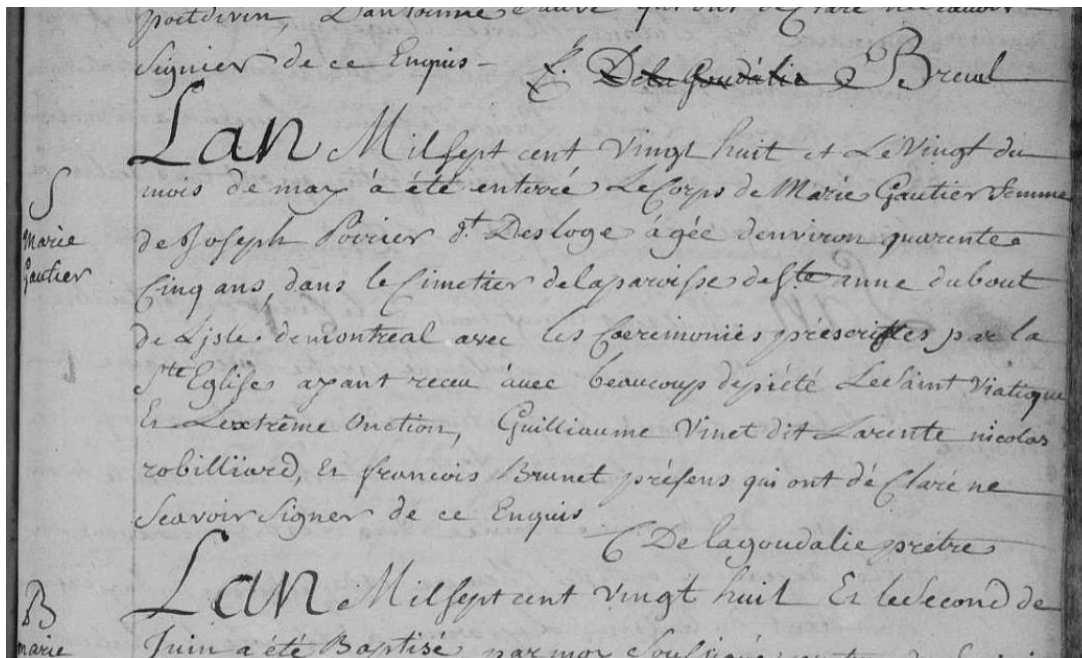 Signier de ce Enquis – C. De la Goudalie P Breul
S
Marie
Gautier
Lan Milsept cent Vingt huit et Le Vingt du
mois de may à été enterré Le Corps de Marie Gautier femme
de Joseph Poirier dt. Desloge àgée denviron quarente
Cinq ans, dans le Cimetier delaparoisse de Ste anne dubout
de Lisle demontreal avec les Coerimoniës préscrittes par la
Ste Eglise ayant receu avec beaucoup depiété Le Saint Viatique
Et Lextrême Onction, Guilliaume Vinet dit Larente nicolas
robilliard, Et francois Brunet présens qui ont dé Claré ne
Scavoir Signer de ce Enquis
C De lagoudalie prétre
B
marie
Lan Milsept cent Vingt huit Et le Second de
Juin a été Baptisé par moy Soussigné